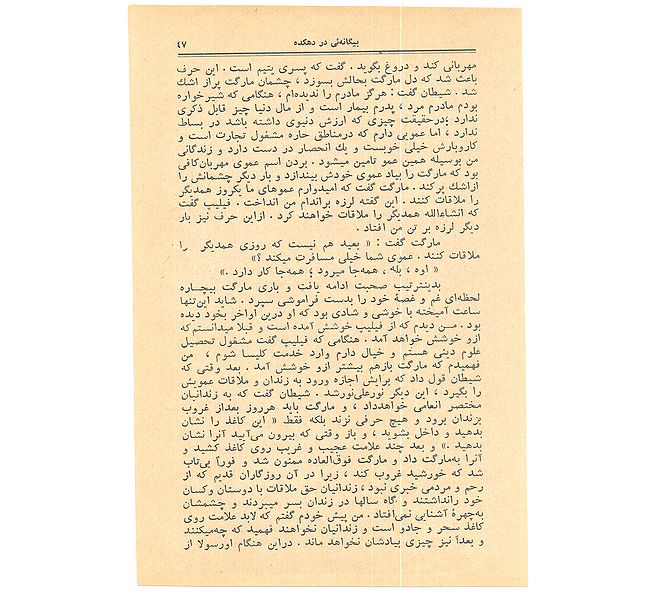 بیگانه‌ئی در دهکده
۴۷
مهربانی کند و دروغ بگوید . گفت که پسری یتیم است . این حرف
باعث شد که دل مارگت بحالش بسوزد ، چشمان مارگت پراز اشك
شد . شیطان گفت : هرگز مادرم را ندیده‌ام ، هنگامی که شیرخواره
بودم مادرم مرد ، پدرم بیمار است و از مال دنیا چیز قابل ذکری
ندارد ؛ درحقیقت چیزی که ارزش دنیوی داشته باشد در بساط
ندارد ، اما عمویی دارم که درمناطق حاره مشغول تجارت است و
کاروبارش خیلی خوبست و یك انحصار در دست دارد و زندگانی
من بوسیله همین عمو تامین میشود . بردن اسم عموی مهربان‌کافی
بود که مارگت را بیاد عموی خودش بیندازد و بار دیگر چشمانش را
ازاشك پرکند . مارگت گفت که امیدوارم عموهای ما یکروز همدیگر
را ملاقات کنند . این گفته لرزه براندام من انداخت . فیلیپ گفت
که انشاءالله همدیگر را ملاقات خواهند کرد . ازاین حرف نیز بار
دیگر لرزه بر تن من افتاد .
مارگت گفت : « بعید هم نیست که روزی همدیگر را
ملاقات کنند . عموی شما خیلی مسافرت میکند ؟»
« اوه ، بله ، همه‌جا میرود ؛ همه‌جا کار دارد .»
بدینترتیب صحبت ادامه یافت و باری مارگت بیچــاره
لحظه‌ای غم و غصهٔ خود را بدست فراموشی سپرد . شاید این‌تنها
ساعت آمیخته با خوشی و شادی بود که او درین اواخر بخود دیده
بود . مــن دیدم که از فیلیپ خوشش آمده است و قبلا میدانستم‌که
ازو خوشش خواهد آمد . هنگامی که فیلیپ گفت مشغول تحصیل
علوم دینی هستم و خیال دارم وارد خدمت کلیسا شوم ، من
فهمیدم که مارگت بازهم بیشتر ازو خوشش آمد . بعد وقتی که
شیطان قول داد که برایش اجازه ورود به زندان و ملاقات عمویش
را بگیرد ، این دیگر نورعلی‌نورشد . شیطان گفت که به زندانیان
مختصر انعامی خواهدداد ، و مارگت باید هرروز بعداز غروب
بزندان برود و هیچ حرفی نزند بلکه فقط « این کاغذ را نشان
بدهید و داخل بشوید ، و باز وقتی که بیرون می‌آیید آنرا نشان
بدهید .» و بعد چند علامت عجیب و غریب روی کاغذ کشید و
آنرا به‌مارگت داد و مارگت فوق‌العاده ممنون شد و فورآ بی‌تاب
شد که خورشید غروب کند ، زیرا در آن روزگاران قدیم که از
رحم و مردمی خبری نبود ، زندانیان حق ملاقات با دوستان وکسان
خود رانداشتند و گاه سالها در زندان بسر میبردند و چشمشان
به‌چهرهٔ آشنایی نمی‌افتاد . من پیش خودم گفتم که لابد علامت روی
کاغذ سحر و جادو است و زندانیان نخواهند فهمید که چه‌میکنند
و بعدآ نیز چیزی بیادشان نخواهد ماند . دراین هنگام اورسولا از